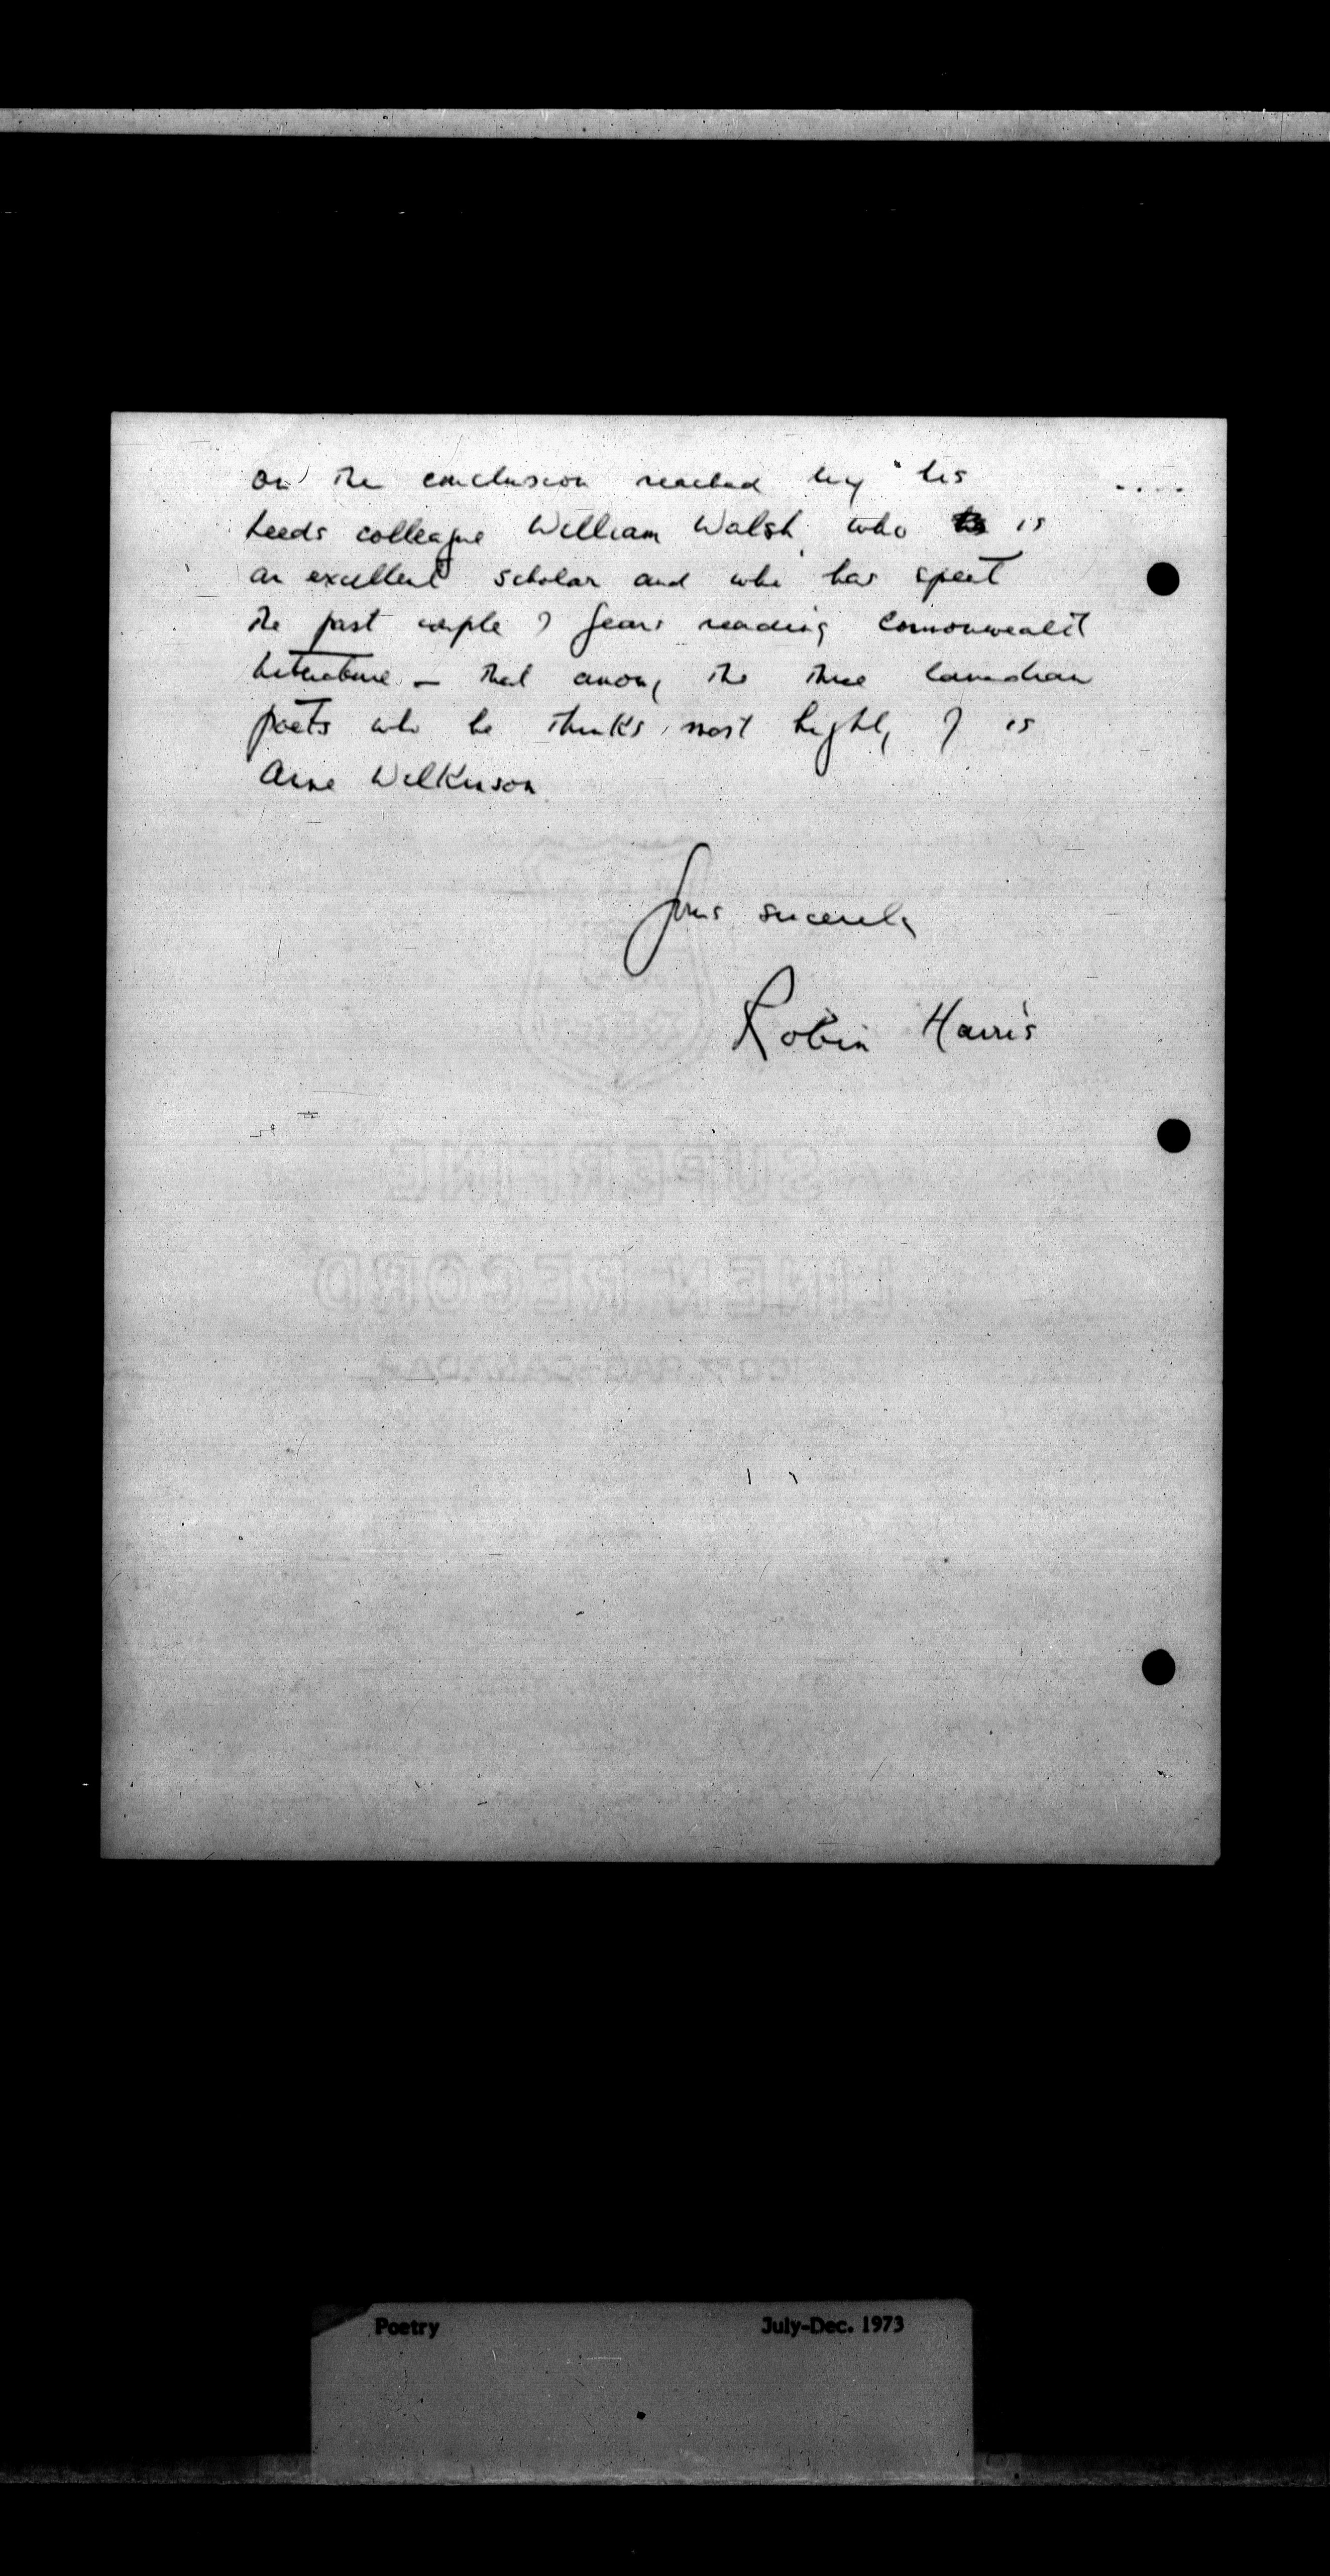 on the conclusion reached by his
....
Leeds colleague William Walsh, who is
an excellent scholar and who has spent
the past couple of years reading Commonwealth
Literature — that among the three Canadian
poets who he thinks most highly of is
Anne Wilkinson.
Yours sincerely
Robin Harris
SUPERFINE
LINEN RECORD
100% RAG-CANADA
Poetry July-Dec. 1973